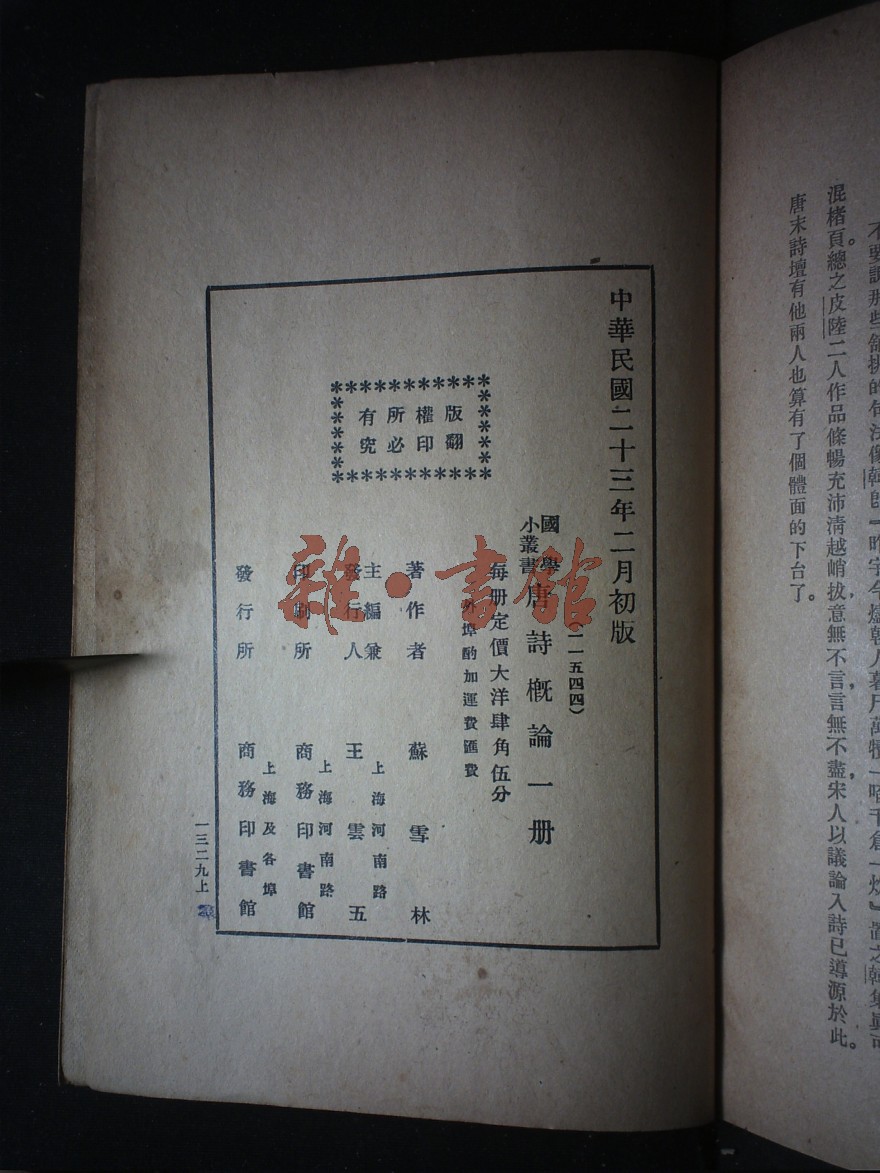 唐末詩壇有他兩人也算有了個體面的下台了。
混楮頁。總之皮陸二人作品條暢充沛清越峭拔意無不言，言無不盡，宋人以議論入詩已導源於此。
中華民國二十三年二月初版
(二一五四四)
國學
小叢書
唐詩概論一册
每册定價大洋肆角伍分
外埠酌加運費匯費
版權所有
翻印必究
著作者 蘇雪林
主編兼
發行人
上海河南路
王雲五
印刷所
上海河南路
商務印書館
發行所
上海及各埠
商務印書館
一三二九上
雜·書館